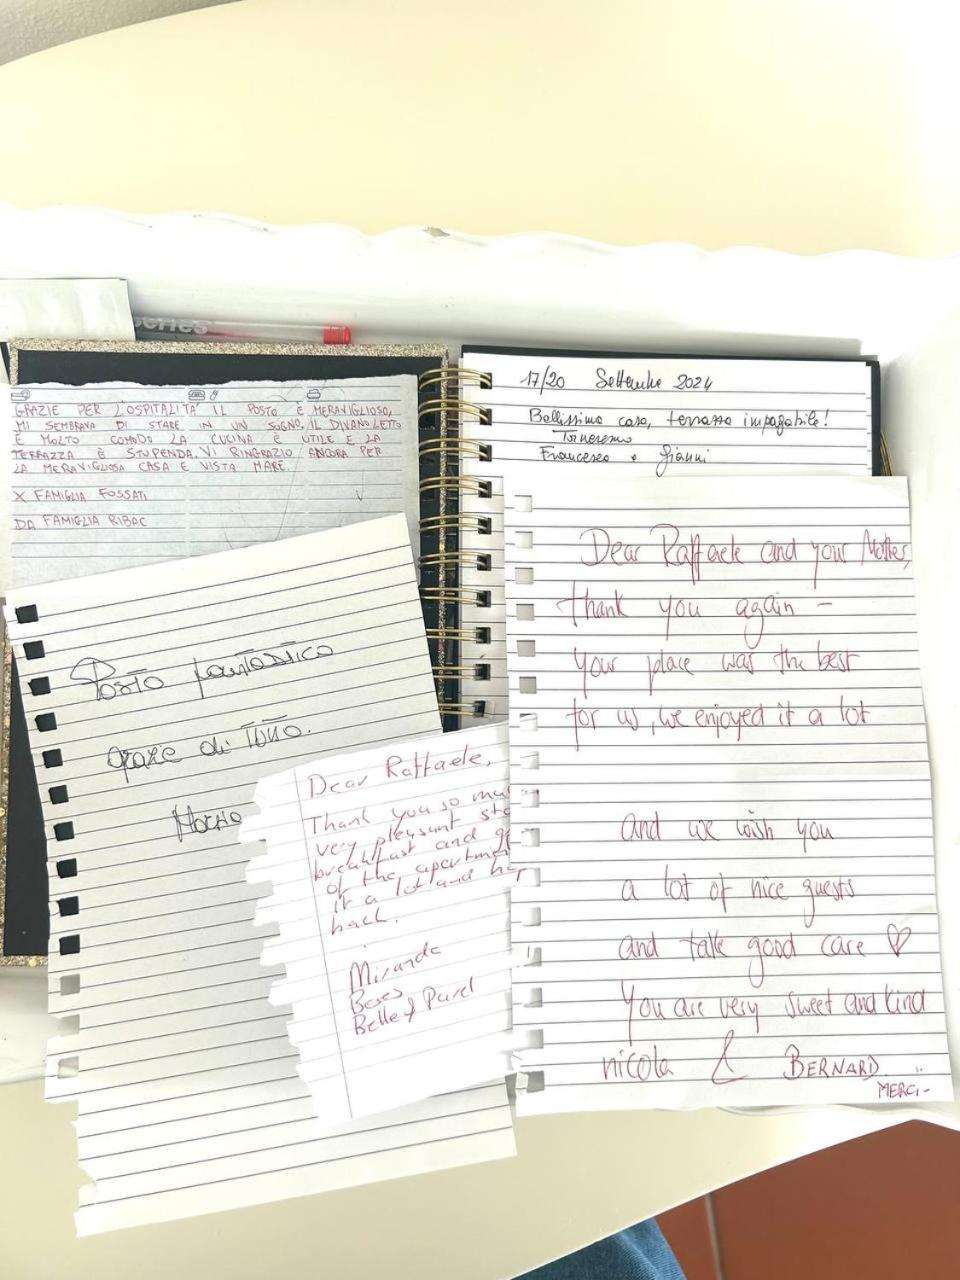 series
GRAZIE PER L'OSPITALITA' IL POSTO È MERAVIGLIOSO,
MI SEMBRAVA DI STARE IN UN SOGNO, IL DIVANO LETTO
È MOLTO COMODO LA CUCINA È UTILE E LA
TERRAZZA È STUPENDA. VI RINGRAZIO ANCORA PER
LA MERAVIGLIOSA CASA E VISTA MARE
X FAMIGLIA FOSSATI
DA FAMIGLIA RIBAC
17/20 Settembre 2024
Bellissima casa, terrazza impagabile!
Torneremo
Francesco e Gianni
Posto fantastico
grazie di tutto.
Dear Raffaele,
Thank you so mu
very pleasunt sta
breakfast and
of the apartmen
it a lot and
back.
Miranda
Belle & Pavel
Dear Raffaele and your Mother,
thank you again –
Your place was the best
for us, we enjoyed it a lot
and we wish you
a lot of nice guests
and take good care ♡
You are very sweet and kind
nicola & BERNARD
MERCI–